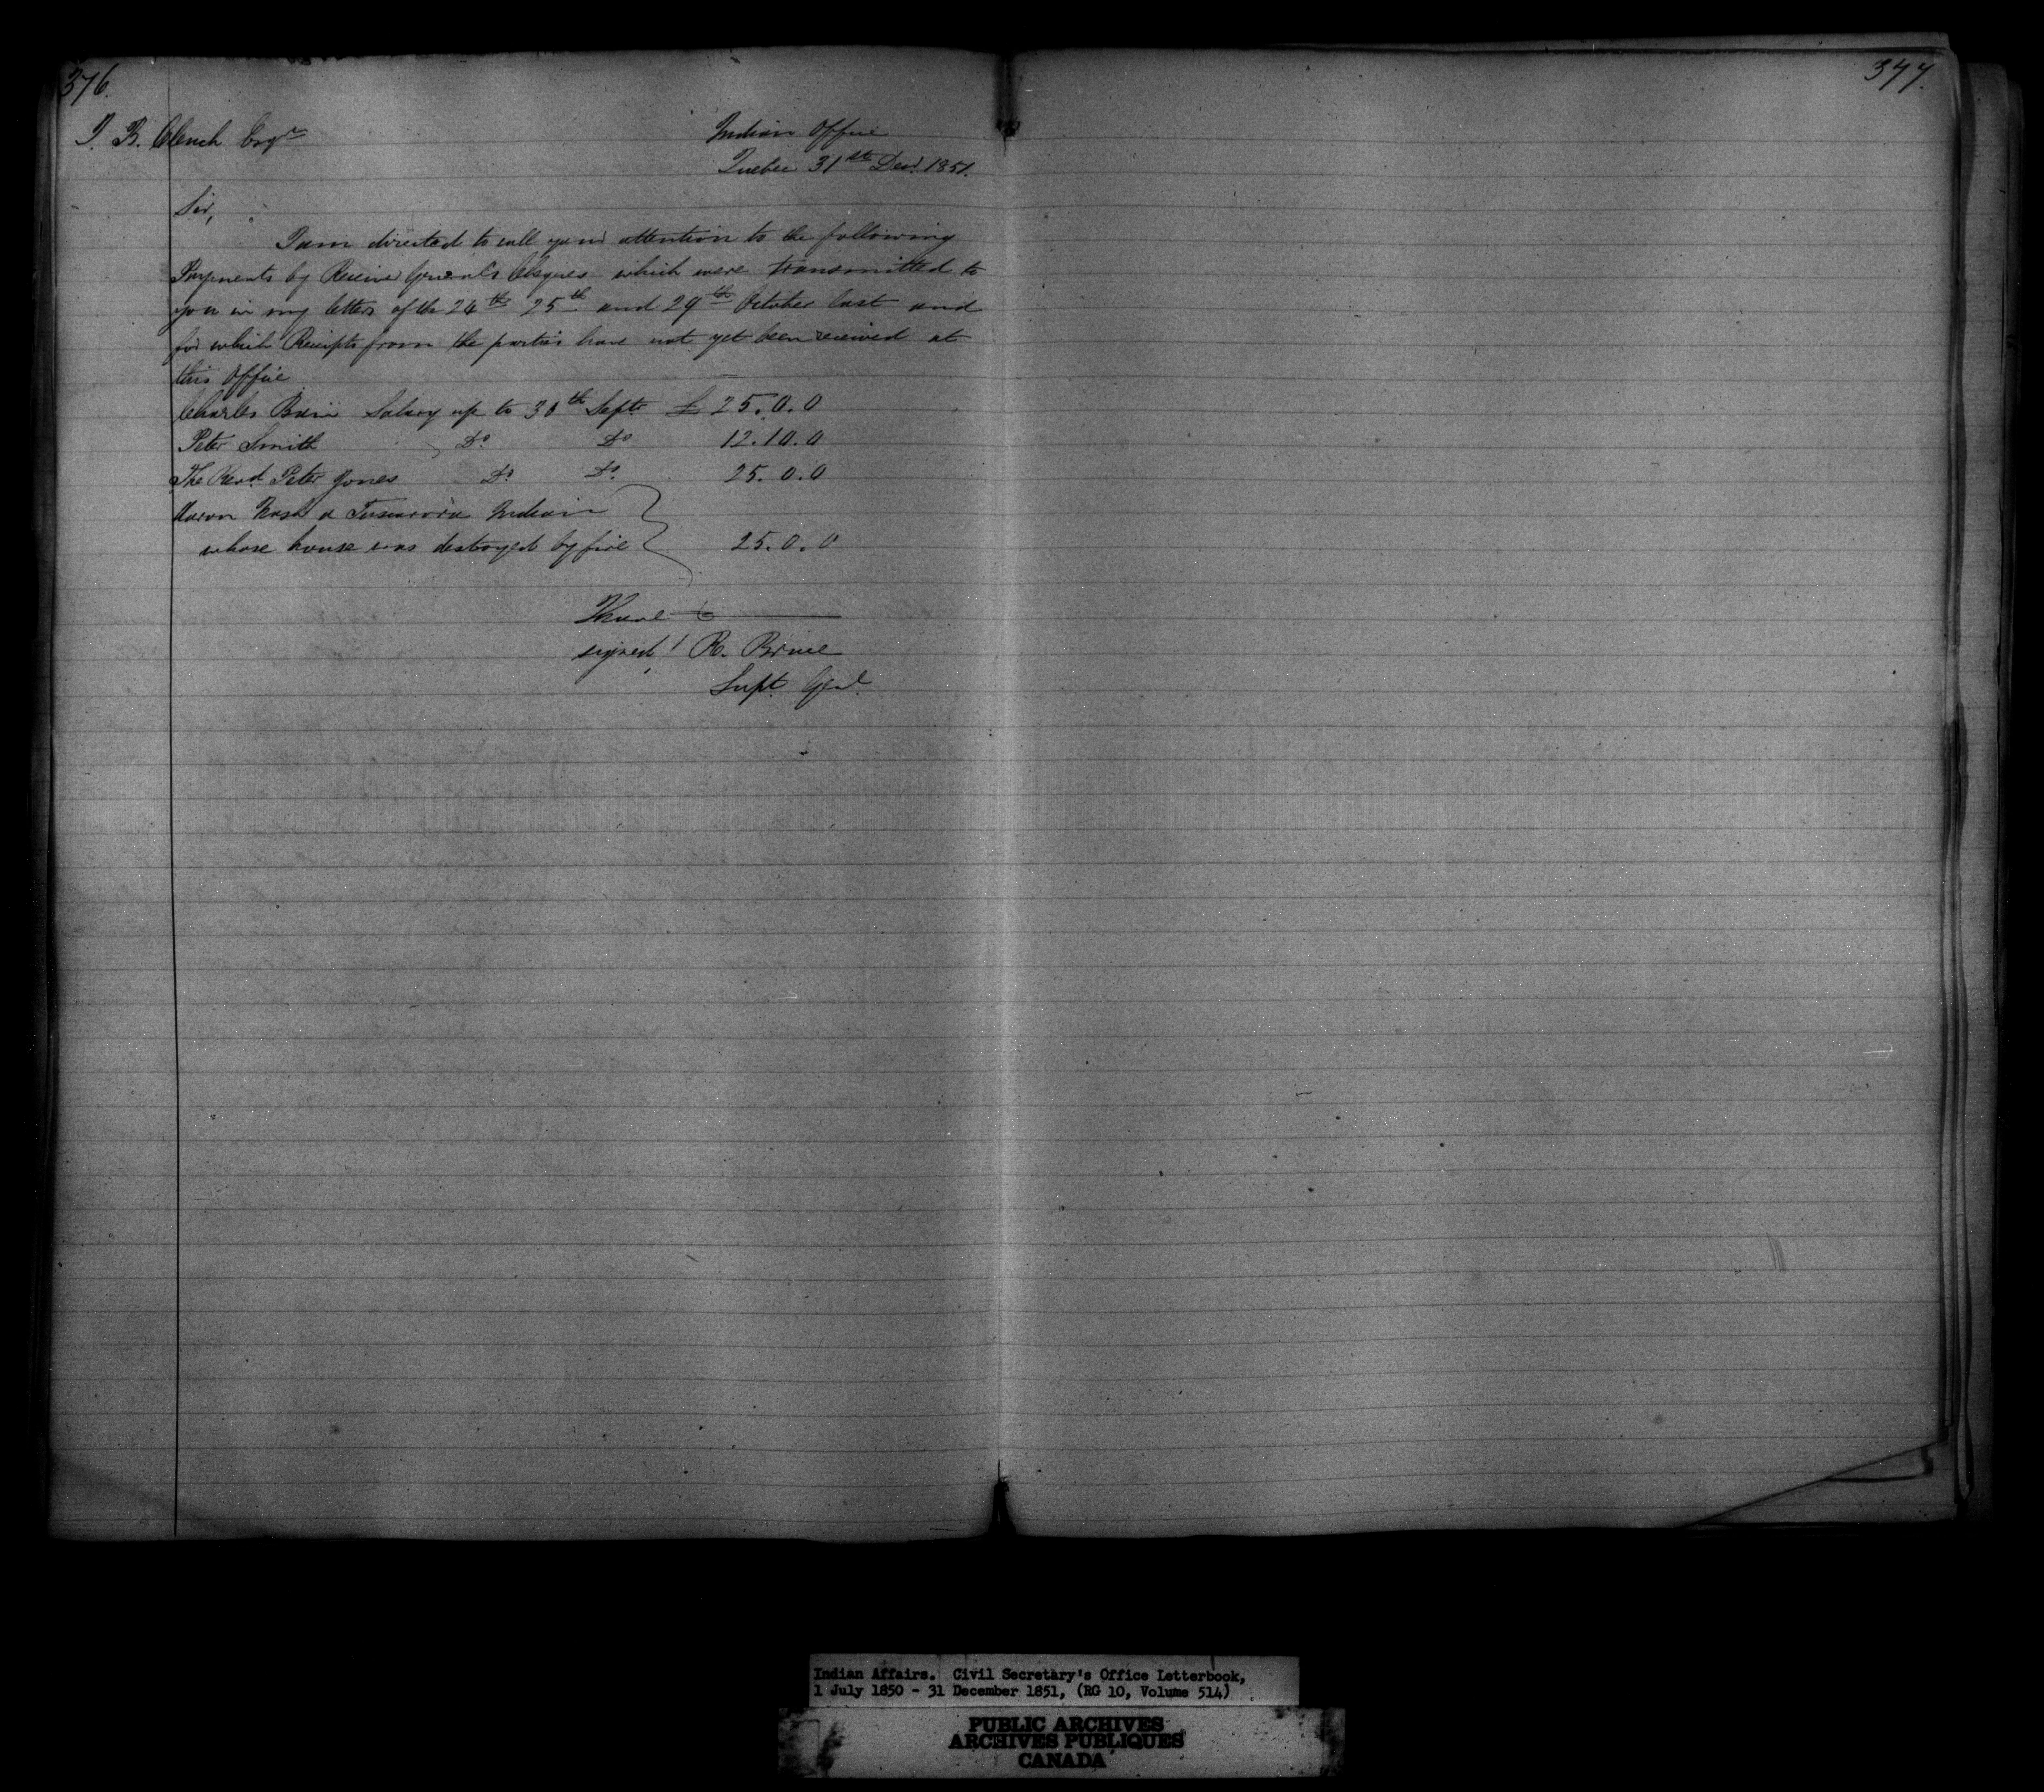 376.
377.
J. B. Clench Esqre
Indian Office
Quebec 31st Decr 1851.
Sir,
I am directed to call your attention to the following
Payments by Receiver General's Cheques which were transmitted to
you in my letters of the 24th 25th and 29th October last and
for which Receipts from the parties have not yet been received at
this Office
Charles Salary up to 30th Septr £ 25.0.0
Peter Smith Do Do 12.10.0
The Revd. Peter Jones Do Do. 25.0.0
Aaron a Tuscarora Indian
whose house was destroyed by fire 25.0.0
I have &c
signed! R. Bruce
Supt. Genl.
Indian Affairs. Civil Secretary's Office Letterbook,
1 July 1850 - 31 December 1851, (RG 10, Volume 514)
PUBLIC ARCHIVES
ARCHIVES PUBLIQUES
CANADA